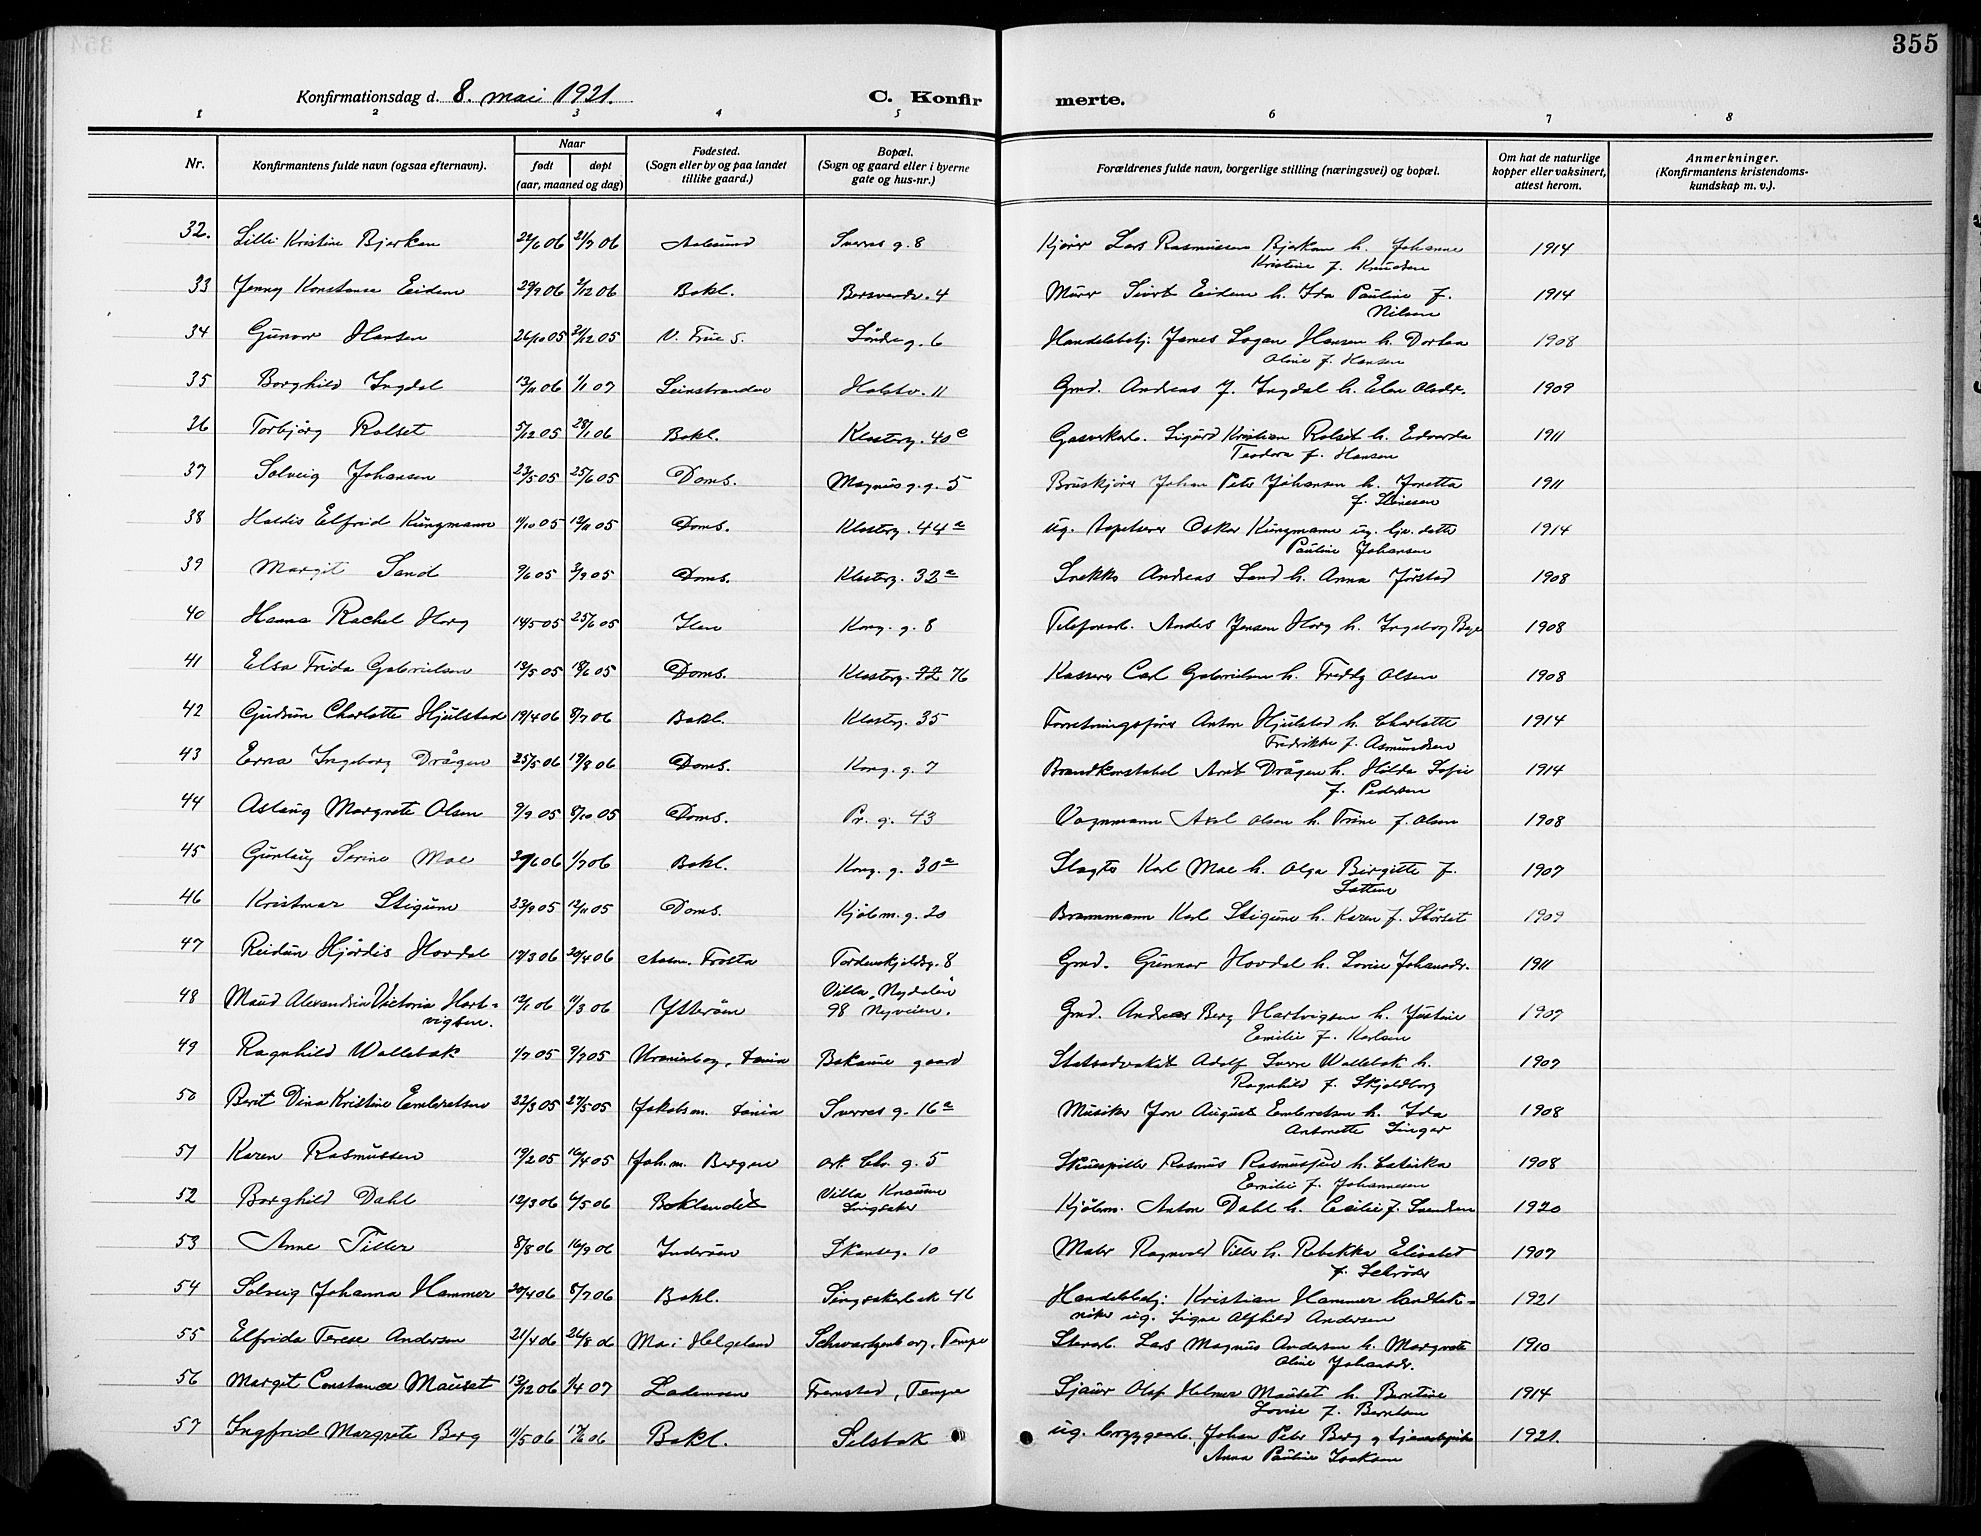 355
Konfirmationsdag d. 8. mai 1921.
C. Konfirmerte.
1 2 3 4 5 6 7 8
Nr.
Konfirmantens fulde navn (ogsaa efternavn).
Naar
født
døpt
(aar, maaned og dag)
Fødested.
(Sogn eller by og paa landet
tillike gaard.)
Bopæl.
(Sogn og gaard eller i byerne
gate og hus-nr.)
Forældrenes fulde navn, borgerlige stilling (næringsvei) og bopæl.
Om hat de naturlige
kopper eller vaksinert,
attest herom.
Anmerkninger.
(Konfirmantens kristendoms-
kundskap m. v.).
32. Lilli Kristine Bjerkan 22/6 06 Aalesund Sverres g. 8 Kjører Lars Rasmussen Bjerkan h. Johanne 1914
Kristine f. Knudsen
33 Jenny Konstanse Eidem 29/9 06 2/12 06 Bakl. 4 Murer Sivert Eidem h. Ida Pauline f. 1914
Nilsen
34 Gunvor Hansen 26/10 05 V. Frue S. Søndre g. 6 Handelsbetj. James Logan Hansen h. Dortea 1908
Oline f. Hansen
35 Borghild Ingdal 13/11 06 1/1 07 Leinstranden Halstv. 11 Gmd. Andreas J. Ingdal h. Elen Olsdr. 1909
36 Torbjørg Rolset 5/12 05 28/1 06 Bakl. Klosterg. 40 c Gasverkarb. Sigurd Kristian Rolset h. Edvarda 1911
Teodora f. Hansen
37 Solveig Johansen 23/5 05 25/6 05 Doms. Magnus g. g. 5 Bruskjører Johan Peter Johansen h. Jonetta 1911
38 Haldis Elfrid Kungmann 9/10 05 12/11 05 Doms. Klosterg. 44 a ug. tapetserer Oskar Kungmann ug. 1914
Pauline Johansen
39 Margit Sand 9/6 05 3/9 05 Doms. Klosterg. 32 a Snekker Andreas Sand h. Anna Jørstad 1908
40 Hanna Rachel Horg 14/5 05 25/6 05 Ilen Kong. g. 8 Telefonarb. Andes Jensen Horg h. Ingeborg Bye 1908
41 Elsa Frida Gabrielsen 13/5 05 18/6 05 Doms. Klosterg. 72 76 Kasserer Carl Gabrielsen h. Fredly Olsen 1908
42 Gudrun Charlotte Hjulstad 19/4 06 8/7 06 Bakl. Klosterg. 35 Forretningsfører Anton Hjulstad h. Charlotte 1914
Fredrikke f. Asmundsen
43 Erna Ingeborg Drågen 25/5 06 19/8 06 Doms. Kong. g. 7 Brandkonstabel Arnt Drågen h. Hilda Sofie 1914
f. Pedersen
44 Aslaug Margrete Olsen 9/9 05 8/10 05 Doms. Pr. g. 43 Vognmann Axel Olsen h. Trine f. Olsen 1908
45 Gunlaug Serine Moe 1/7 06 Bakl. Kong. g. 30 a Slagter Karl Moe h. Olga Birgitte f. 1907
46 Kristmar Stigum 23/9 05 12/11 05 Doms. Kjøbm. g. 20 Karl Stigum h. Karen f. Størset 1909
47 Reidun Hjørdis Hovdal 17/3 06 20/4 06 Aasen. Frosta Tordenskjoldsg. 8 Gmd. Gunnar Hovdal h. Lovise Johansdr. 1911
48 Maud Alexandria Victoria Hart-
vigsen. 12/1 06 11/3 06 Ytterøen Villa "Nydalen"
98 Nyveien. Gmd. Andreas Berg Hartvigsen h. Justine 1907
Emilie f. Karlsen
49 Ragnhild Wallebæk 1/7 05 9/7 05 Bakaune gaard Statsadvokat Adolf Sverre Wallebæk h. 1907
Ragnhild f. Skjoldborg
50 Berit Dina Kristine Embretsen 22/3 05 27/5 05 Jakobs m. Sverres g. 16 a Musiker Jon August Embretsen h. Ida 1908
Antonette Singer
51 Karen Rasmussen 19/2 05 16/4 05 Joh. m. Bergen ark. Chr. g. 5 Skuespiller Rasmus Rasmussen h. 1908
Emilie f. Johannesen
52 Borghild Dahl 12/3 06 6/5 06 Baklandet Villa Knausen
Singsaker Kjøbm. Anton Dahl h. Cecilie f. Svendsen 1920
53 Anne Tiller 8/8 06 16/9 06 Inderøen Skanseg. 10 Maler Ragnvald Tiller h. Rebekka Elisabet 1907
f. Schrøder
54 Solveig Johanna Hammer 20/4 06 8/7 06 Bakl. Singsakerbak 46 Handelsbetj. Kristian Hammer tandtek-
niker ug. Signe Alfhild Andersen 1921
55 Elfrida Terese Andersen 21/4 06 26/8 06 Mo i Helgeland Schwartzenborg, Tempe Stenarb. Lars Magnus Andersen h. Margrete 1910
Oline Johansdr.
56 Margit Constance Mauset 13/12 06 1/4 07 Lademoen Fremstad, Tempe Sjauer Olaf Helmer Mauset h. Berntine 1914
Lovise f. Berntsen
57 Ingfrid Margrete Berg 11/5 06 17/6 06 Bakl. Selsbak ug. bryggearb. Johan Peter Berg og tjenestepike 1921.
Anna Pauline Isaksen